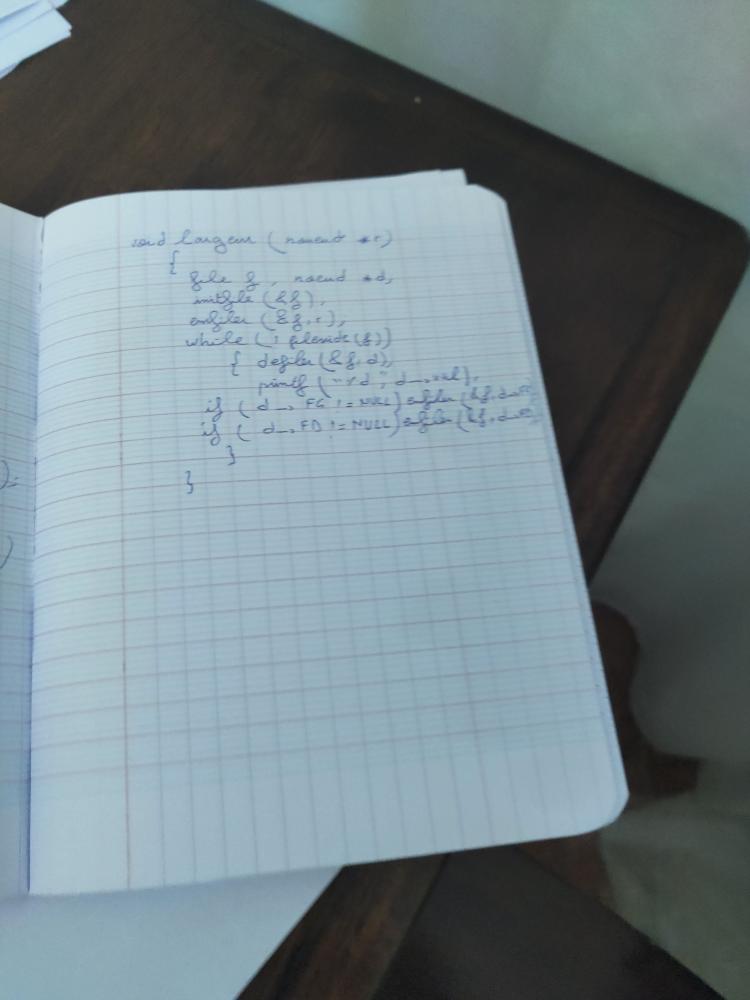 void largeur (noeud *r)
{
file f , noeud *d,
initfile (&f),
enfiler (&f, r),
while ( ! filevide (f))
{ defiler (&f, d),
printf ("%d", d→val),
if ( d→ FG != NULL) enfiler (&f, d→FG
if ( d→ FD != NULL) enfiler (&f, d→FD
}
}
);
)